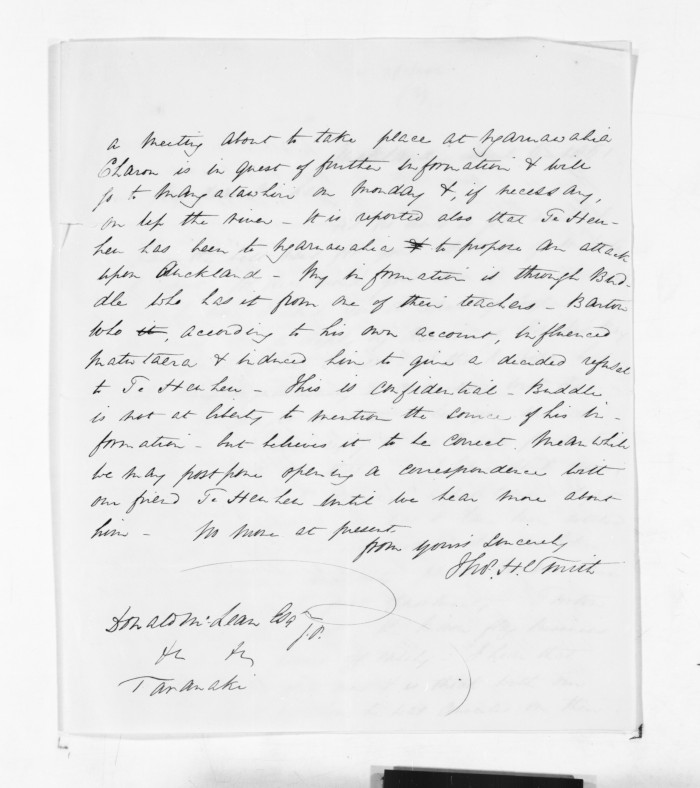 a meeting about to take place at Ngaruawahia
Charon is in quest of further information & will
go to Mangatawhiri on Monday &, if necessary,
on up the river - It is reported also that Te Heu-
heu has been to Ngaruawahia & to propose an attack
upon Auckland - My information is through Bud-
dle who has it from one of their teachers - Barton
who it, according to his own account, influenced
Matutaera & induced him to give a decided refusal
to Te Heuheu - This is confidential - Buddle
is not at liberty to mention the source of his in-
formation - but believes it to be correct. Meanwhile
we may postpone opening a correspondence with
our friend Te Heuheu until we hear more about
him - No more at present
from yours sincerely
Thos. H. Smith
Donald McLean Esqre
J.P.
&c &c
Taranaki